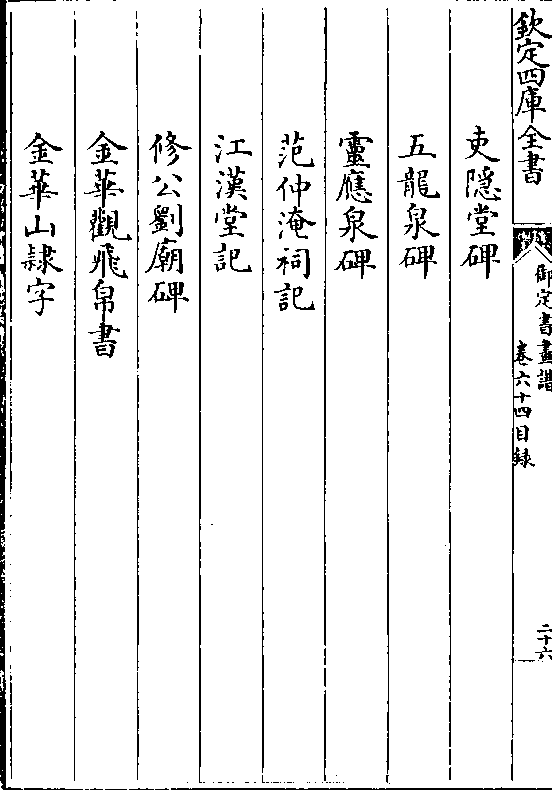 欽定四庫全書
御定書畫譜
卷六十四目録
二十六
吏隠堂碑
五龍泉碑
靈應泉碑
范仲淹祠記
江漢堂記
修公劉廟碑
金華觀飛帛書
金華山隷字